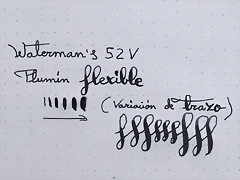 Waterman's 52V
Plumín flexible
(Variación de trazo)